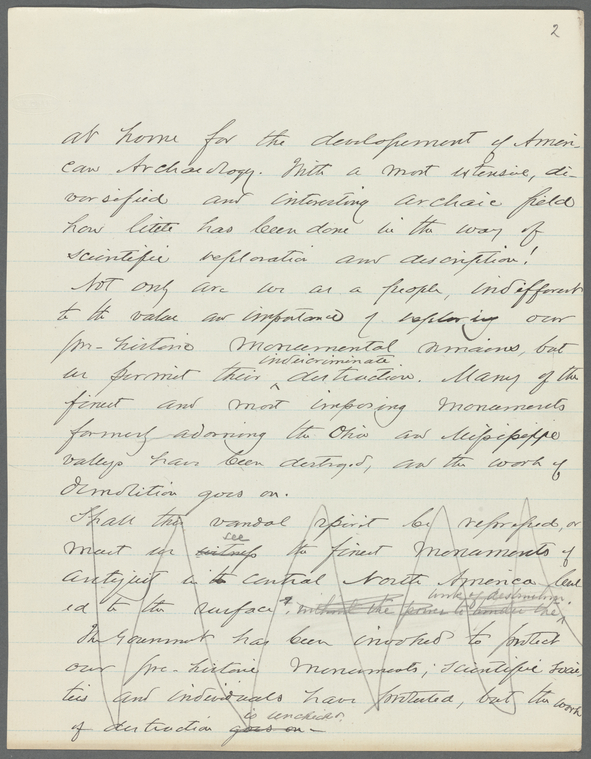 2
at home for the developement of Ameri-
can Archaeology. With a most extensive, di-
versified and interesting archaic field
how little has been done in the way of
scientific exploration and description!
Not only are we as a people, indifferent
to the value and importance of exploring our
pre-historic monumental remains, but
indiscriminate
we permit their ^ destruction. Many of the
finest and most imposing monuments
formerly adorning the Ohio and
valleys have been destroyed, and the work of
demolition goes on.
Shall this vandal spirit be repressed, or
see
must we witness the finest monuments of
antiquity in central North America level
ed to the surface? without the power to hinder the
work of destruction.
The Government has been invoked to protect
our pre-historic monuments; scientific socie-
ties and individuals have protested, but the work
is unchecked.
of destruction goes on—